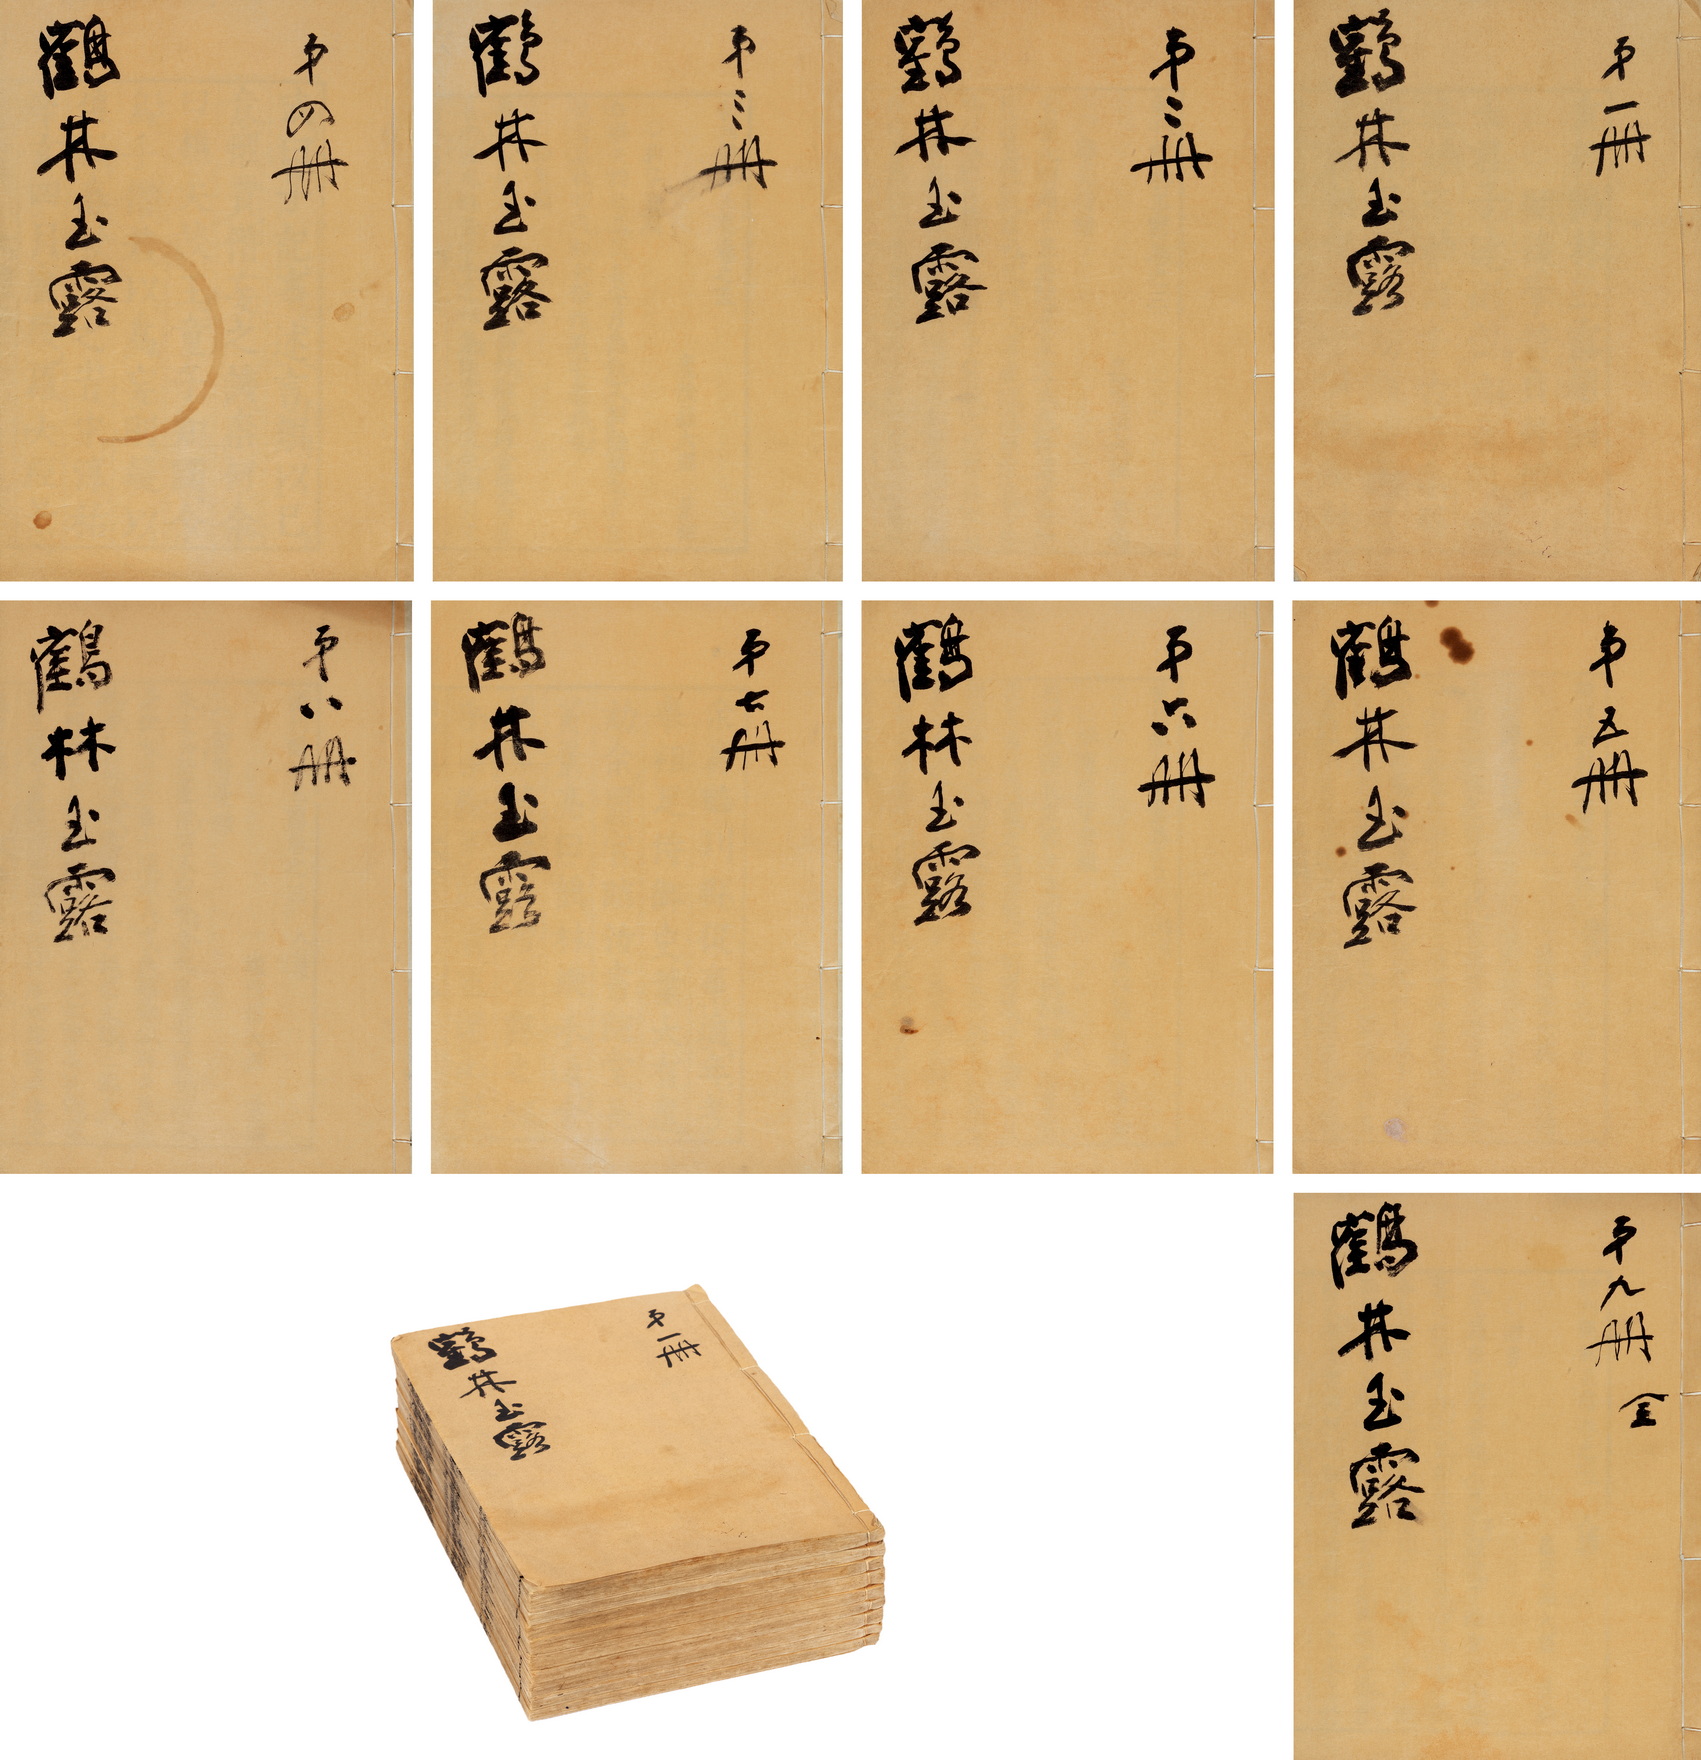 第一册
鶴林玉露
第二册
鶴林玉露
第三册
鶴林玉露
第四册
鶴林玉露
第五册
鶴林玉露
第六册
鶴林玉露
第七册
鶴林玉露
第八册
鶴林玉露
第九册 全
鶴林玉露
第一册
鶴林玉露